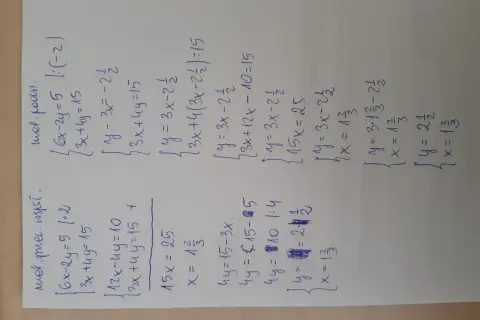 6x-2y=5 |·2
3x+4y=15
12x-4y=10
3x+4y=15 +
15x=25
x=1 2/3
4y=15-3x
4y=15-5
4y=10 |:4
y=2 1/2
x=1 2/3
6x-2y=5 |:(-2)
3x+4y=15
y-3x=-2 1/2
3x+4y=15
y=3x-2 1/2
3x+4(3x-2 1/2)=15
y=3x-2 1/2
3x+12x-10=15
y=3x-2 1/2
15x=25
y=3x-2 1/2
x=1 2/3
y=3·1 2/3-2 1/2
x=1 2/3
y=2 1/2
x=1 2/3